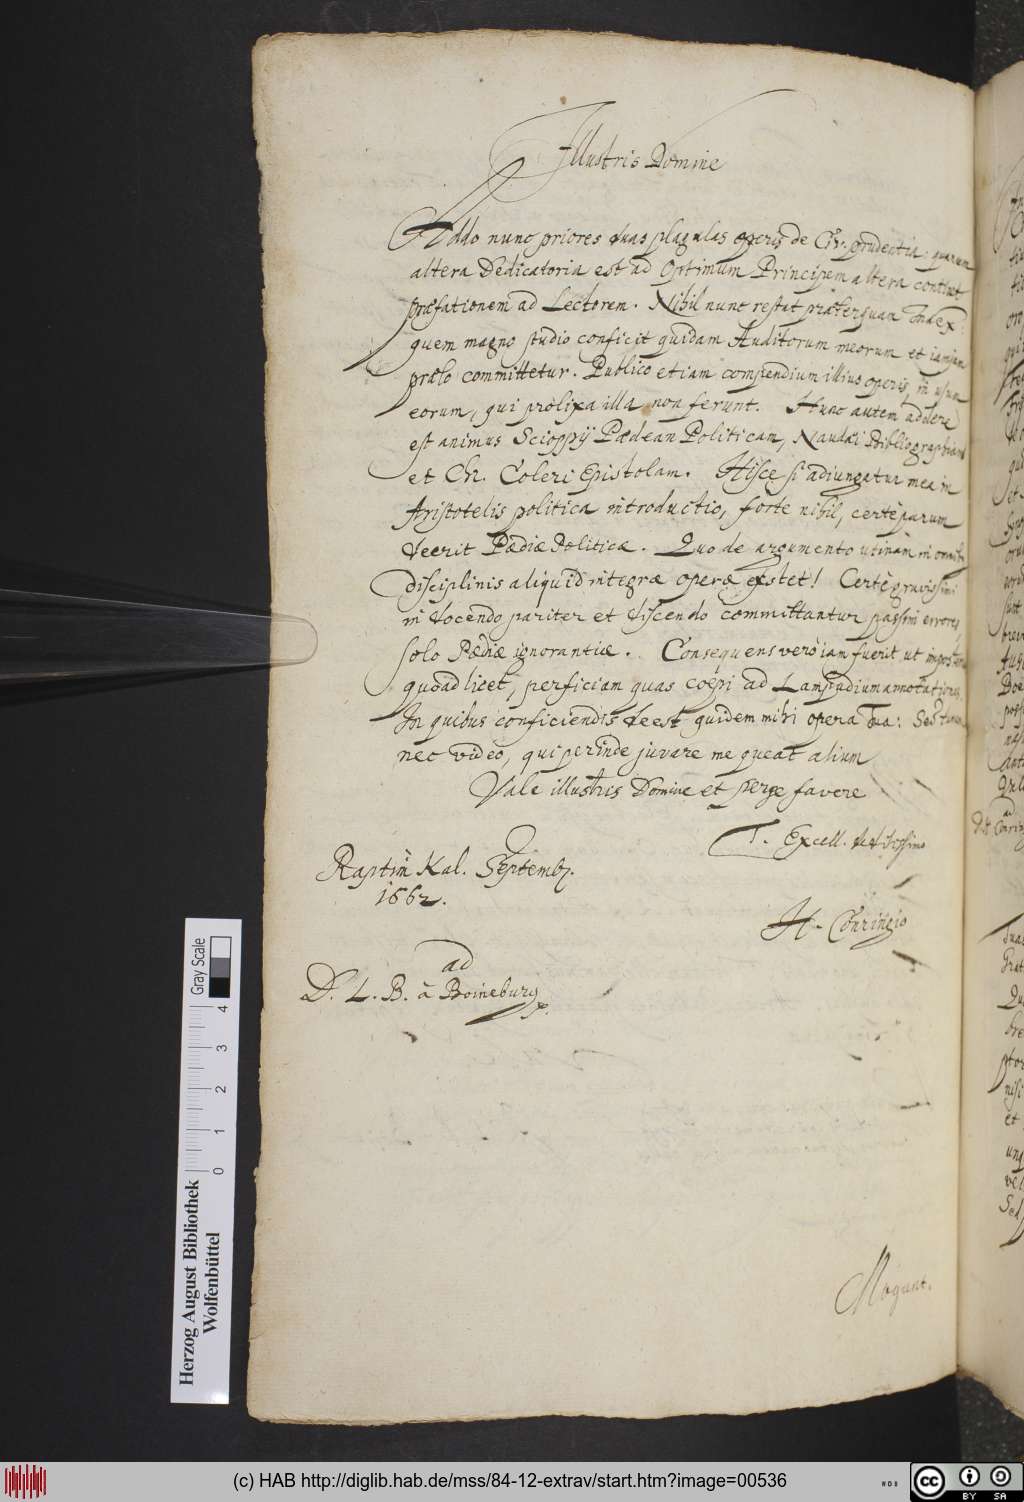 Illustris Domine
Addo nunc priores duas plagulas operis de Civ. prudentia: quarum
altera Dedicatoria est ad Optimum Principem altera continet
præfationem ad Lectorem. Nihil nunc restat præterquam Index:
quem magno studio conficit quidam Auditorum meorum et iamiam
prælo committetur. Publico etiam compendium illius operis, in usum
eorum, qui prolixa illa non ferunt. Huic autem addere
est animus Scioppij Pædean Politicam, Naudæi Bibliographiam
et Ch. Coleri Epistolam. Hisce si adiungatur mea in
Aristotelis politica introductio, forte nihil, certè parum
deerit Pædiæ Politicæ. Quo de argumento utinam in omnibus
disciplinis aliquid integræ operæ exstet! Certè gravissimi
in docendo pariter et discendo committantur passim errores,
solo Pædiæ ignorantiæ. Consequens verò iam fuerit ut
quoad licet, perficiam quas coepi ad Lampadium annotationes.
In quibus conficiendis deest quidem mihi opera Tua: Sed tamen
nec video, qui perinde juvare me queat alium
Vale illustris Domine et perge favere
T. Excell. deditissimo
Raptim Kal. Septemb.
1662.
H. Conringio
ad
D. L. B. à Boineburg
Mogunt.
Herzog August Bibliothek
Wolfenbüttel
0 1 2 3 4
Gray Scale
(c) HAB http://diglib.hab.de/mss/84-12-extrav/start.htm?image=00536
cc BY SA